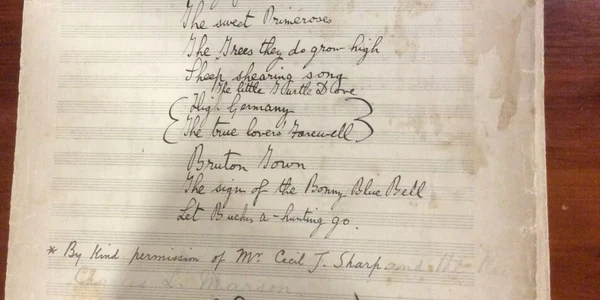 The sweet Primeroses
The Trees they do grow high
Sheep shearing song
The little Turtle Dove
High Germany
The true lovers Farewell
Bruton Town
The sign of the Bonny Blue Bell
Let Bucks a-hunting go.
* By Kind permission of Mr. Cecil J. Sharp and
Charles L. Marson